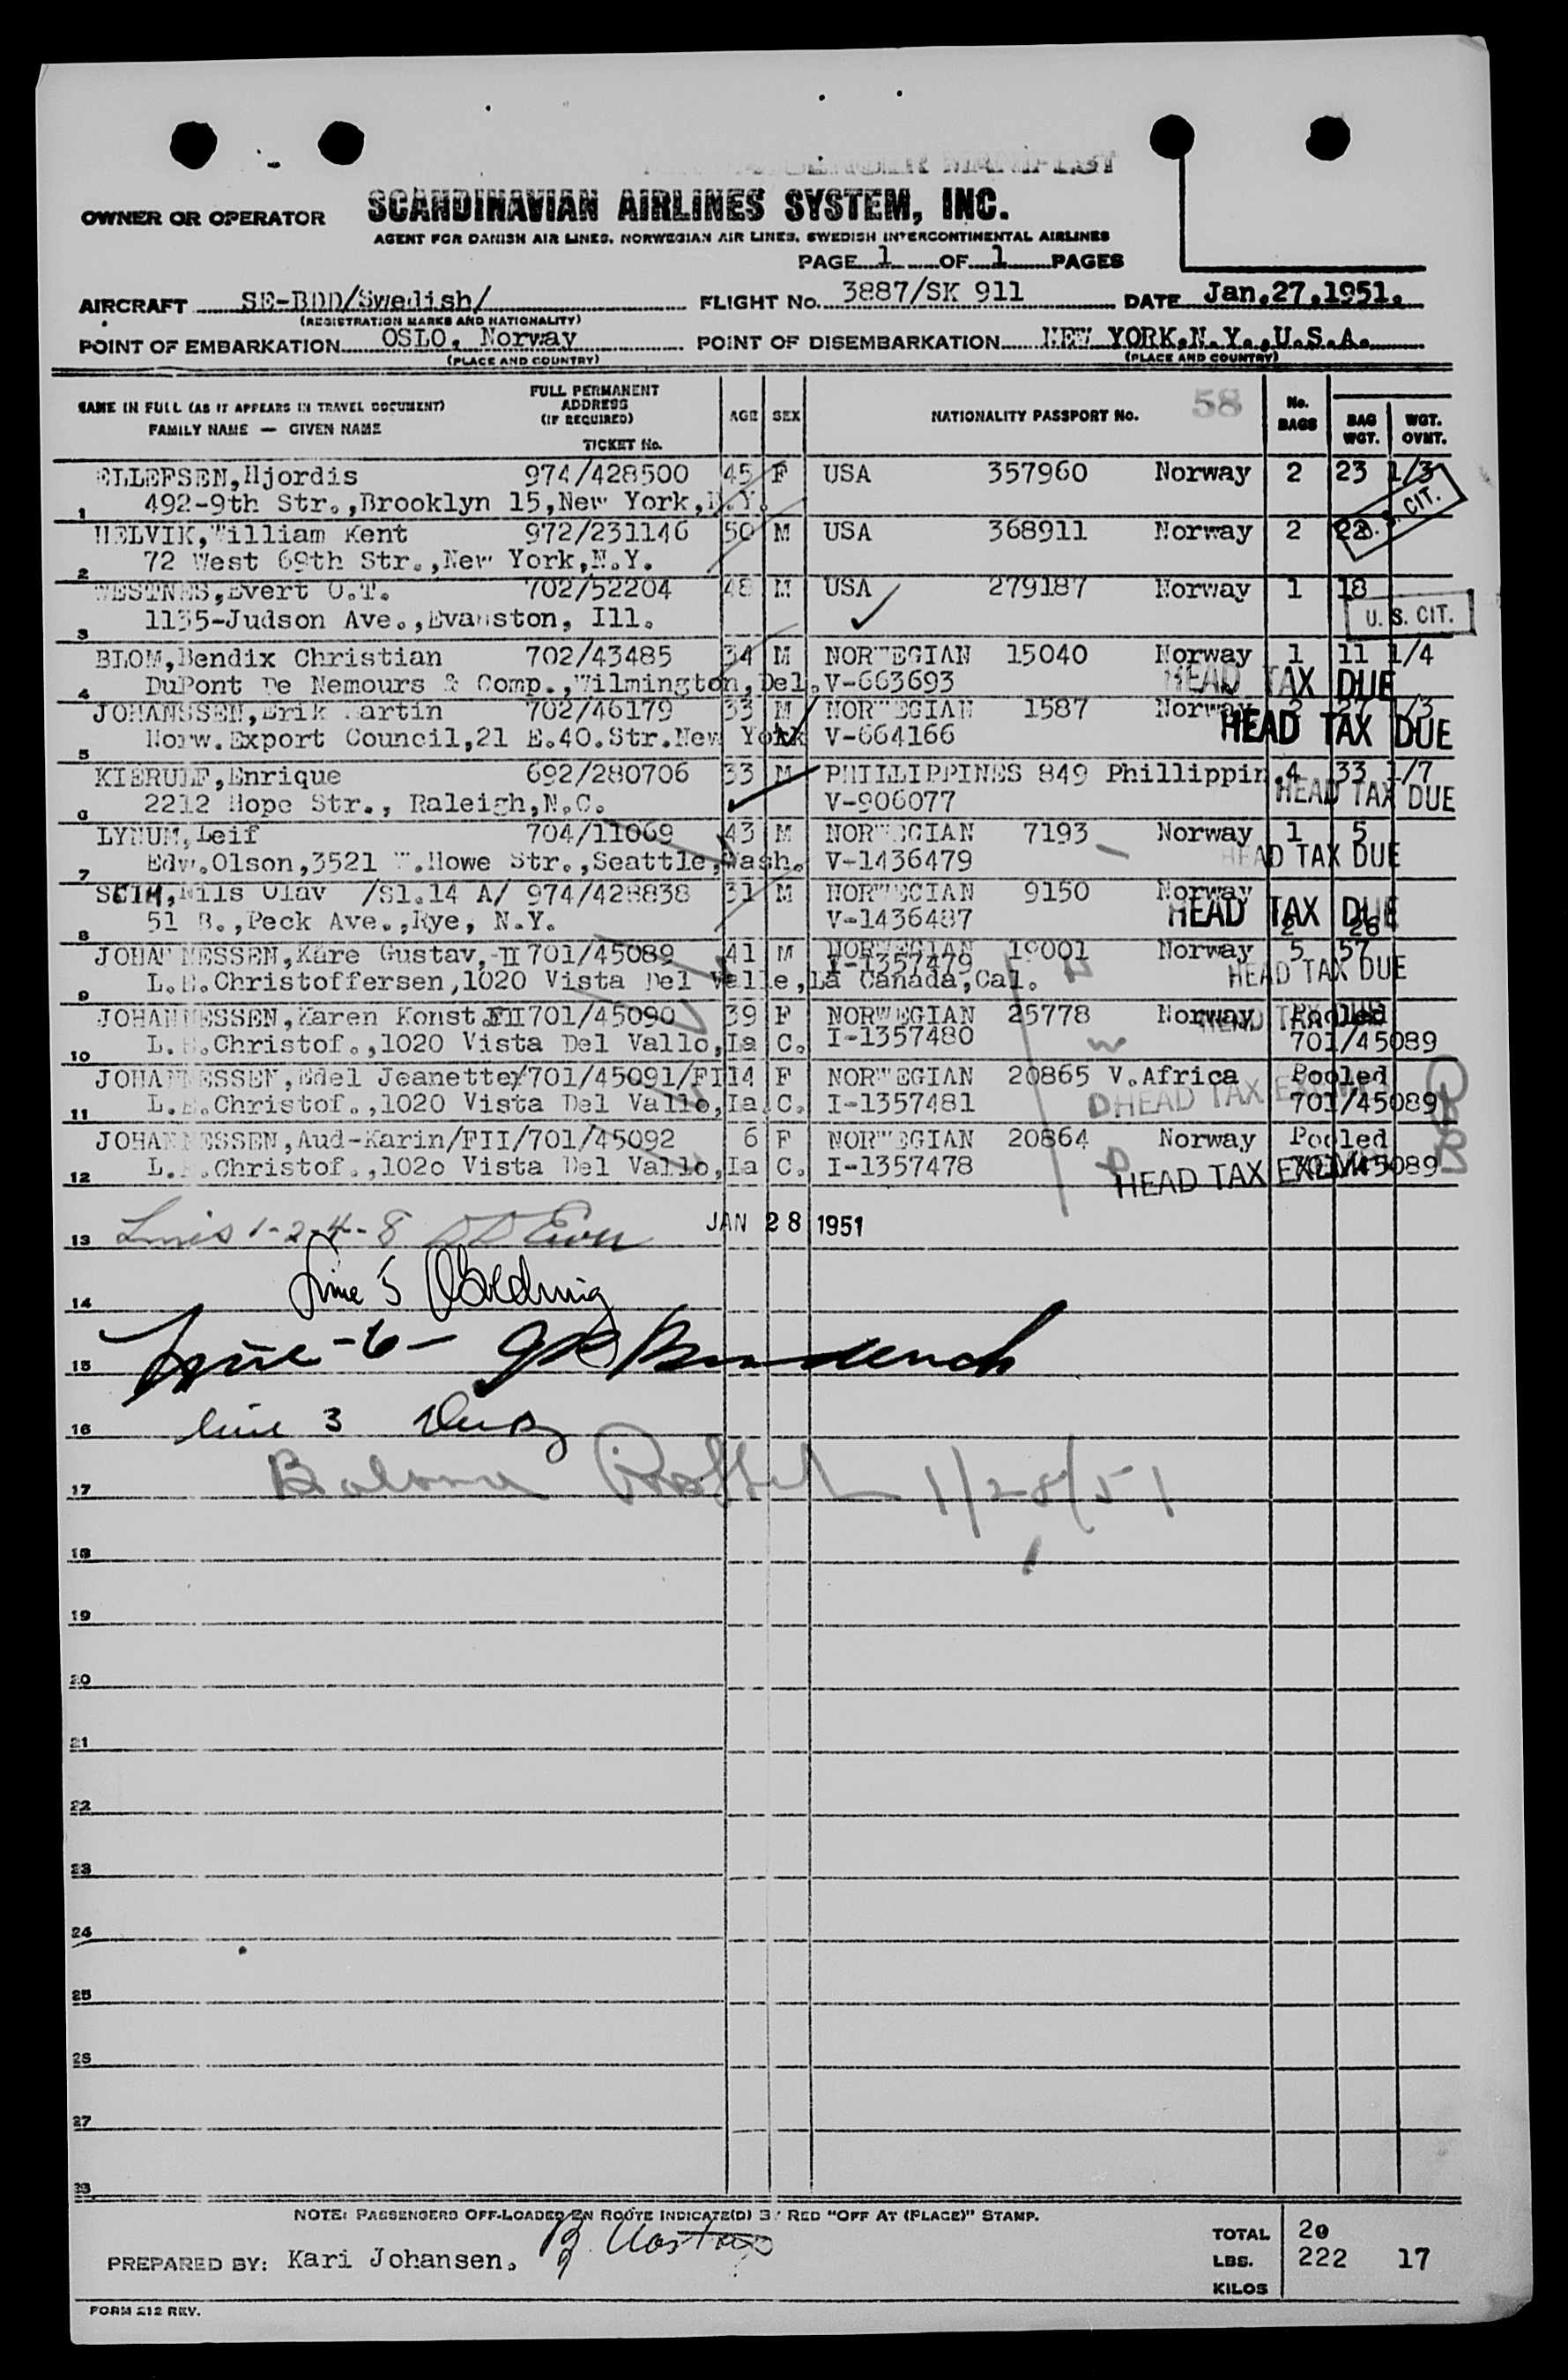 PASSENGER MANIFEST
OWNER OR OPERATOR SCANDINAVIAN AIRLINES SYSTEM, INC.
AGENT FOR DANISH AIR LINES, NORWEGIAN AIR LINES, SWEDISH INTERCONTINENTAL AIRLINES
PAGE 1 OF 1 PAGES
AIRCRAFT SE-BDD/Swedish/ FLIGHT No. 3887/SK 911 DATE Jan.27,1951.
(REGISTRATION MARKS AND NATIONALITY)
POINT OF EMBARKATION OSLO, Norway POINT OF DISEMBARKATION NEW YORK,N.Y.,U.S.A.
(PLACE AND COUNTRY) (PLACE AND COUNTRY)
NAME IN FULL (AS IT APPEARS IN TRAVEL DOCUMENT) FAMILY NAME — GIVEN NAME FULL PERMANENT ADDRESS (IF REQUIRED) TICKET No. AGE SEX NATIONALITY PASSPORT No. 58 No. BAGS BAG WGT. WGT. OVWT.
ELLEFSEN,Hjordis 974/428500 45 F USA 357960 Norway 2 23 1/3
1 492-9th Str.,Brooklyn 15,New York,N.Y. U. S. CIT.
HELVIK,William Kent 972/231146 50 M USA 368911 Norway 2 22
2 72 West 69th Str.,New York,N.Y.
WESTNES,Evert O.T. 702/52204 48 M USA 279187 Norway 1 18
3 1135-Judson Ave.,Evanston, Ill. U. S. CIT.
BLOM,Bendix Christian 702/43485 34 M NORWEGIAN 15040 Norway 1 11 1/4
4 DuPont De Nemours & Comp.,Wilmington,Del. V-663693 HEAD TAX DUE
JOHANSSEN,Erik Martin 702/46179 33 M NORWEGIAN 1587 Norway 2 27 1/3
5 Norw.Export Council,21 E.40.Str.New York V-664166 HEAD TAX DUE
KIERULF,Enrique 692/280706 33 M PHILLIPPINES 849 Phillippin. 4 33 1/7
6 2212 Hope Str., Raleigh,N.C. V-906077 HEAD TAX DUE
LYNUM,Leif 704/11069 43 M NORWEGIAN 7193 Norway 1 5
7 Edw.Olson,3521 W.Howe Str.,Seattle,Wash. V-1436479 HEAD TAX DUE
SEIM,Nils Olav /Sl.14 A/ 974/428838 31 M NORWEGIAN 9150 Norway
8 51 B.,Peck Ave.,Rye, N.Y. V-1436487 HEAD TAX DUE 2 26
JOHANNESSEN,Kåre Gustav,-II 701/45089 41 M NORWEGIAN 19001 Norway 5 57
I-1357479
9 L.E.Christoffersen,1020 Vista Del Valle,La Canada,Cal. HEAD TAX DUE
JOHANNESSEN,Karen Konst.FII 701/45090 39 F NORWEGIAN 25778 Norway Pooled
10 L.E.Christof.,1020 Vista Del Vallo,La C. I-1357480 701/45089
HEAD TAX DUE
JOHANNESSEN,Edel Jeanette/701/45091/FI 14 F NORWEGIAN 20865 V.Africa Pooled
11 L.E.Christof.,1020 Vista Del Vallo,La.C. I-1357481 701/45089
HEAD TAX EXEMPT
JOHANNESSEN,Aud-Karin/FII/701/45092 6 F NORWEGIAN 20864 Norway Pooled
12 L.E.Christof.,1020 Vista Del Vallo,La C. I-1357478 701/45089
HEAD TAX EXEMPT
13 Lines 1-2-4-8 JAN 28 1951
14 Line 5
15 Line -6-
16 line 3
17 1/28/51
18
19
20
21
22
23
24
25
26
27
28
NOTE: PASSENGERS OFF-LOADED EN ROUTE INDICATE(D) BY RED "OFF AT (PLACE)" STAMP.
PREPARED BY: Kari Johansen.
TOTAL 20
LBS. 222 17
KILOS
FORM 212 REV.